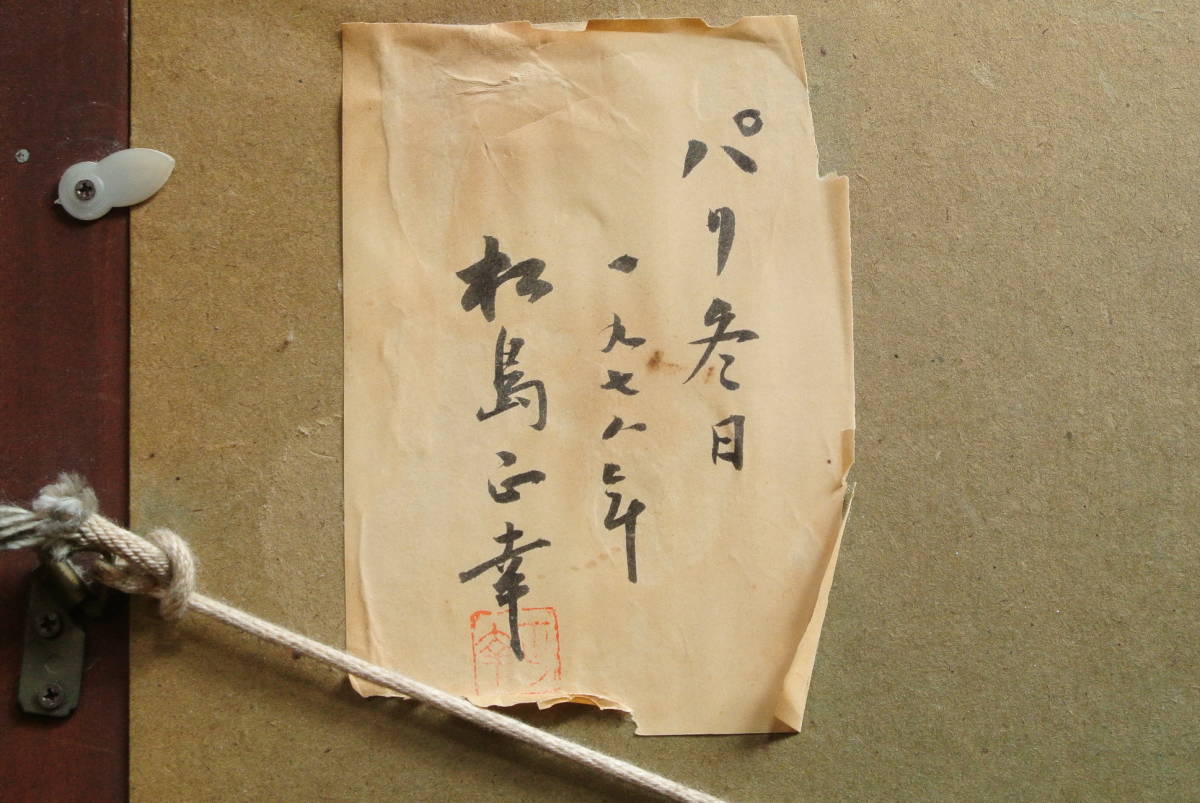 パリ冬日
一九七八年
松島正幸
正幸